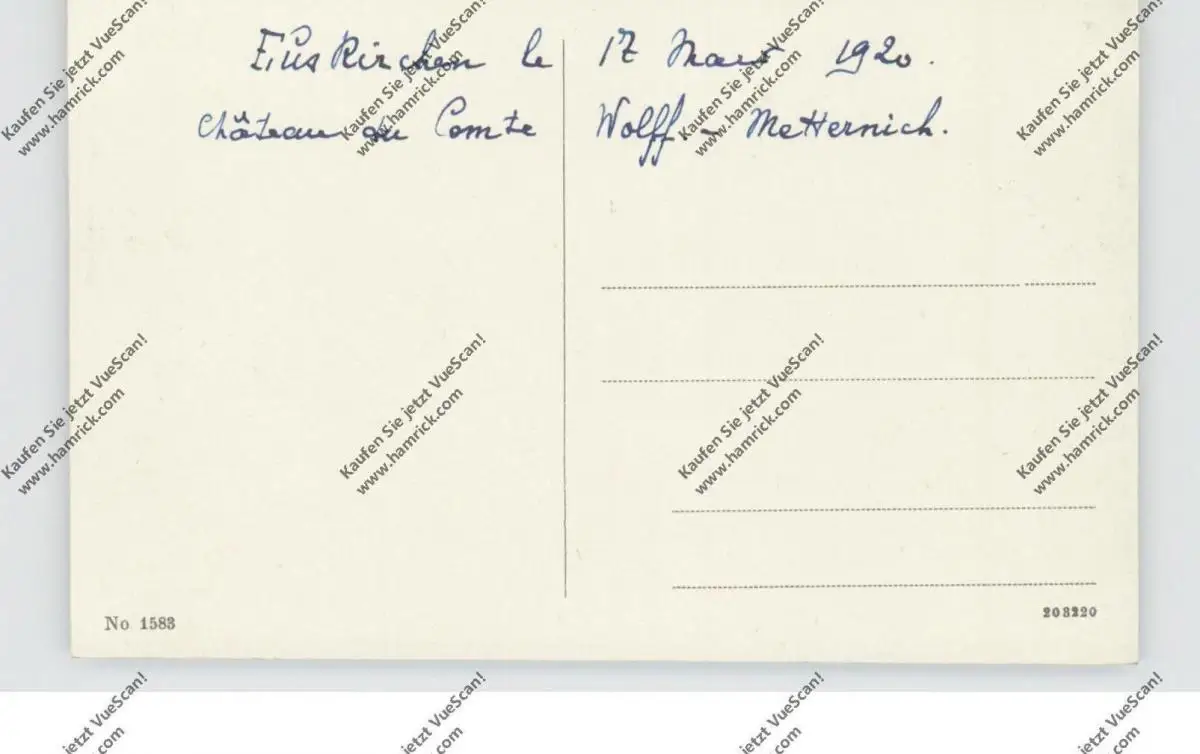 Euskirchen le 17 Mars 1920.
Château du Comte Wolff-Metternich.
No 1583
203220
Kaufen Sie jetzt VueScan!
www.hamrick.com
Kaufen Sie jetzt VueScan!
www.hamrick.com
Kaufen Sie jetzt VueScan!
www.hamrick.com
Kaufen Sie jetzt VueScan!
www.hamrick.com
Kaufen Sie jetzt VueScan!
www.hamrick.com
Kaufen Sie jetzt VueScan!
www.hamrick.com
Kaufen Sie jetzt VueScan!
www.hamrick.com
Kaufen Sie jetzt VueScan!
www.hamrick.com
jetzt VueScan!
.com
jetzt VueScan!
.com
jetzt VueScan!
.com
jetzt VueScan!
.com